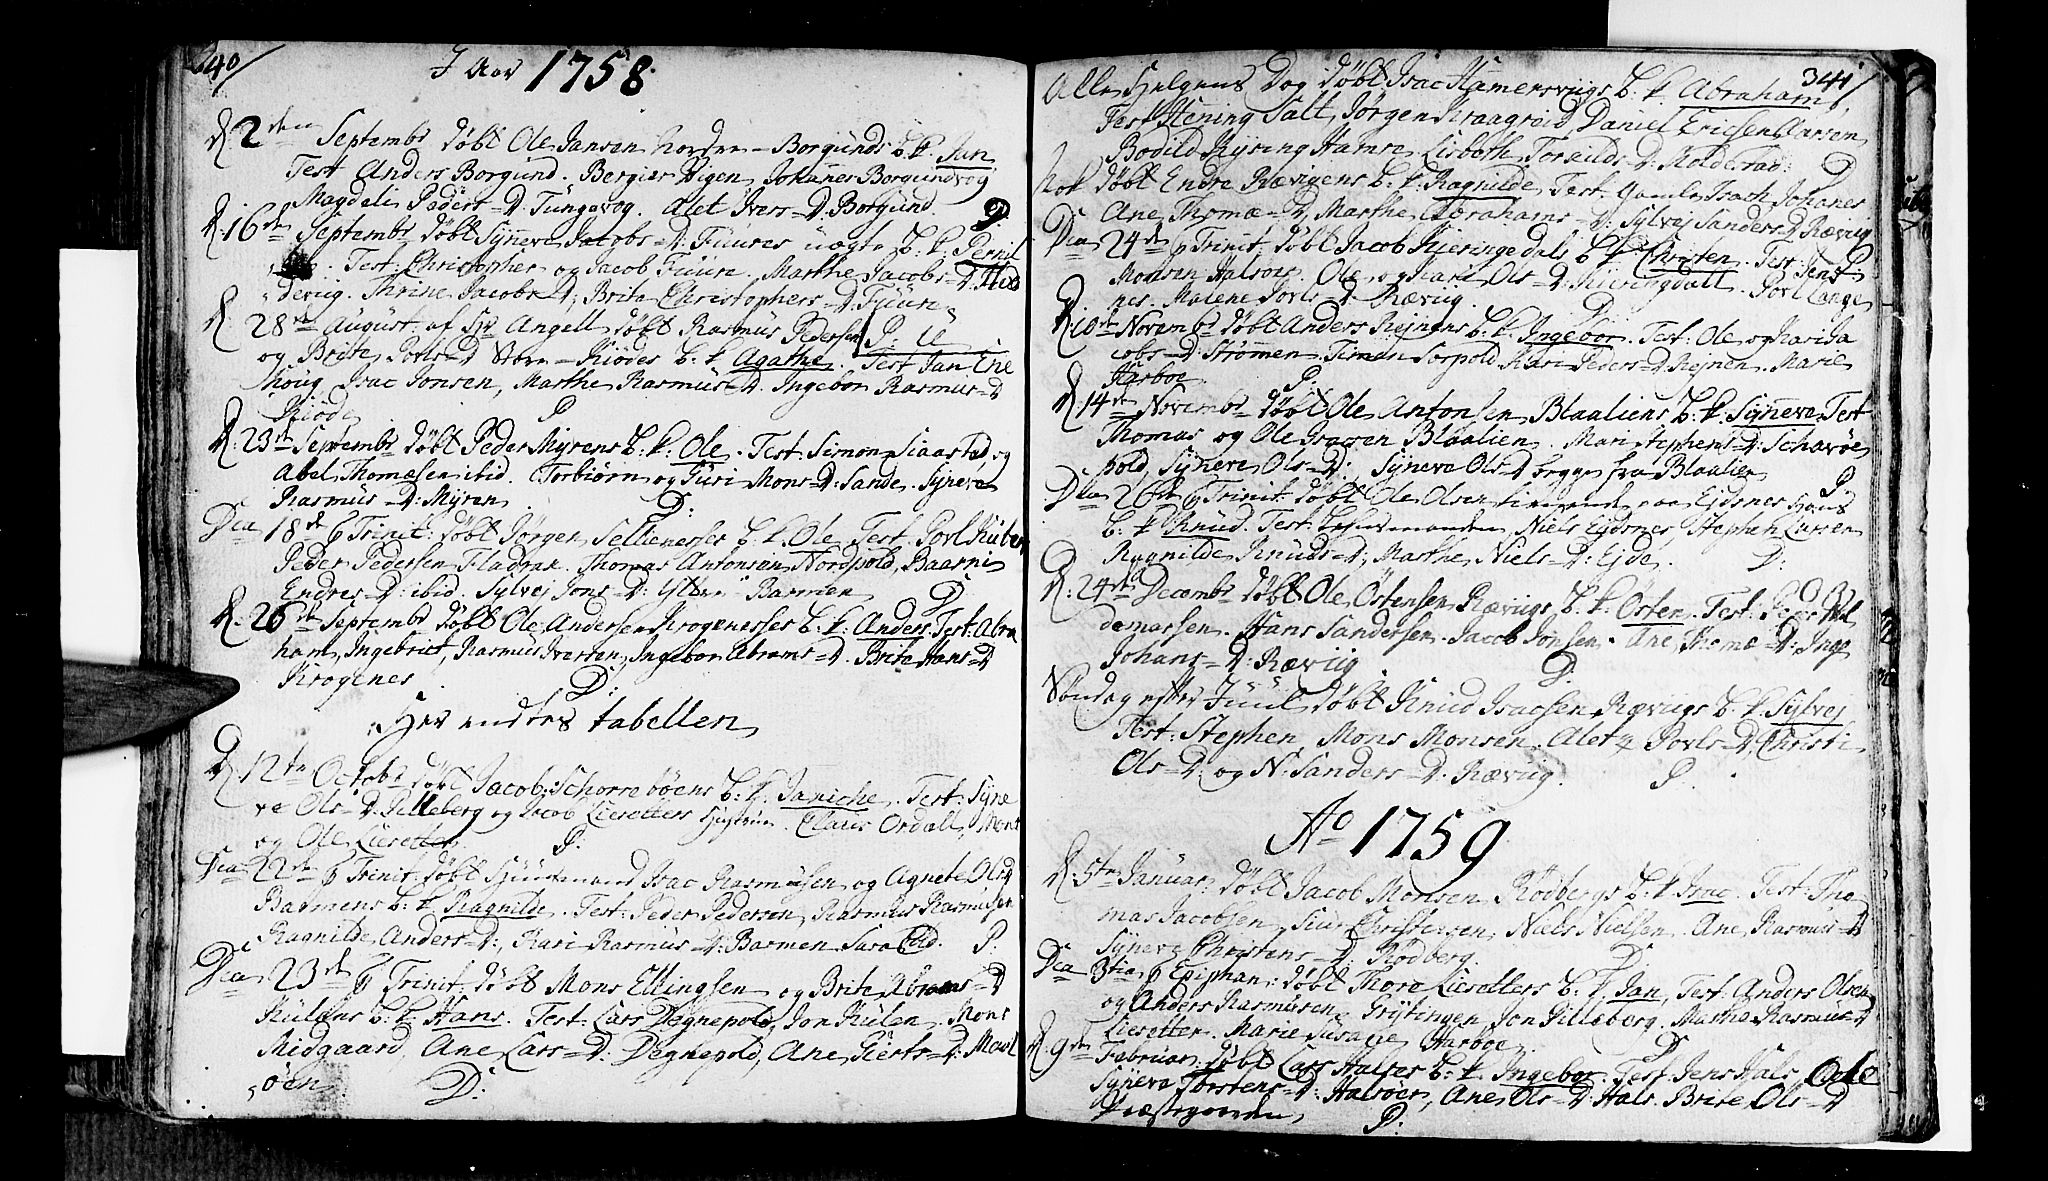 340
I Aar 1758.
D 2den Septembr døbt Ole Jansen Borgunds b. k. Jan
Test Anders Borgund. Bergier Wigen, Johanes Borgundvog
Magdeli Peders-D. Tungevog. Alet Ivers-D. Borgund.
P.
D. 16de Septembr døbt Synneve Jacobs-D. Fuures uegte b. k. Pernil
Test: Christopher og Jacob Fuure. Marthe Jacobs-D. Hid
deviig. Thrine Jacobs D, Brite Christophers-D. Fuure
D. 28de August af Hr Angell døbt Rasmus Pedersen P. U
og Brite Povls-D Store-Kiödes b. k. Agathe. Test Jan Ene
houg Isac Jonsen, Marthe Rasmus-D. Ingebor Rasmus-D
Kiöde P
D: 23de Septembr døbt Peder Myrens b. k: Ole. Test: Simon Siaastad og
Abel Thomesen ibid. Torbiørn og Guri Mons-D: Sande. Syneve
Rasmus-D: Myren. D:
Dca 18de p Trinit: døbt Jørgen Sellieneses b. k. Ole Test. Povl
Peder Pedersen Fladrak. Thomas Antonsen Nordpold, Baarni
Endres-D: ibid. Sylvej Jons-D: Ytter-Barmen D
D. 26de Septembr døbt Ole Andersen Krogeneses b. k: Anders. Test: Abra
ham, Ingebrict, Rasmus Iversen, Ingebor Abrams-D. Brite Hans-D
Krogenes. D:
Her endes tabellen
D. 12te Octobr døbt Jacob Schorrebøens b: k: Janiche. Test: Syne
ve Ols-D. Lilleberg og Jacob Liesetters Hustrue. Claus Ordall, Mons
og Ole Liesetter. P:
Dca 22de p Trinit. døbt Huusmand Isac Rasmussen og Agnete Ols D
Barmens b: k Ragnilde. Test: Peder Pedersen, Rasmus Rasmusen
Ragnilde Anders-D:, Kari Rasmus-D: Barmen Sara ibid. P.
Dca 23de p Trinit. døbt Mons Ellingsen og Brite Abrams-D
Kulens b. k. Hans. Test: Lars Degnepold, Jon Kulen. Mons
Midgaard, Ane Lars-D: Degnepold, Ane Sierts-D: Mowl
øen. D:
341
Alle Helgens Dag døbt Isac Hamersviigs b. k. Abraham
Test Hening Salt, Jørgen Kraagreid, Daniel Ericsen Larsen
Bodild Kyring Hamre. Lisbeth Toraild D. Koldestad. D
Nok døbt Endre Rævigens b. k. Ragnilde, Test: Gamle Isach Johanes
Ane Thomæ-D, Marthe Abrahams-D: Sylvej Sanders D. Rævig
Dca 24de p Trinit. døbt Jacob Kieringedals b. k Christen. Test: Jens P
Monsen Halsør. Ole og Kari Ols-D: Kieringdall. Povl Lange
nes. Malene Povls-D. Rævug. D
D 10de Novembr døbt Anders Rejnens b. k. Ingebor. Test: Ole og Kari Ja
cobs-D. Strømmen. Simon Sorpold, Kari Peders-D. Rejnen. Marie
Harboe P.
D. 14de Novembr døbt Ole Antonsen Blaaliens b. k. Syneve Test
Thomas og Ole Iversen Blaalien. Mari Stephens-D: Schavøe
pold, Syneve Ols-D: Syneve Ols-D begge fra Blaalien P
Dca 26de p Trinit. døbt Ole Olsen tienende paa Ejdsnes hans
b. k Knud. Test. Niels Ejdsnes, Stephen Larsen
Ragnilde Knuds-D: Marthe Niels-D: Ejde. D:
D: 24de Decembr døbt Ole Östensen Rævigs b. k. Östen. Test: Peder Wal
demarsen. Hans Sandersen. Jacob Jonsen. Ane Thomæ-D: Inge
Johans-D. Ræviig D.
Søndag efter Juul døbt Knud Isacsen Rævigs b. k. Sylvej
Test: Stephen, Mons Monsen. Alet Povls-D. Christi
Ols-D: og N. Sanders-D. Rævug. P.
Ao 1759
D. 5te Januar døbt Jacob Monsen Rødbergs b. k Isac. Test: Tho
mas Jacobsen, Siur Christensen, Niels Nielsen. Ane Rasmus-D
Syneve Christens-D. Rødberg. D
Dca 3tia p Epiphan: døbt Thore Liesetters b. k. Jan, Test: Anders Olsen
og Anders Rasmusen. Grytingen, Jon Lilleberg. Marthe Rasmus-D
Liesetter. Marie Susane Harboe. D
D. 9de Februar døbt Lars Halses b. k. Ingebor. Test. Jens Hals, Ole
Syneve Torstens-D: Halsöer, Ane Ols-D: Hals. Brite Ols-D
Præstegaarden P.